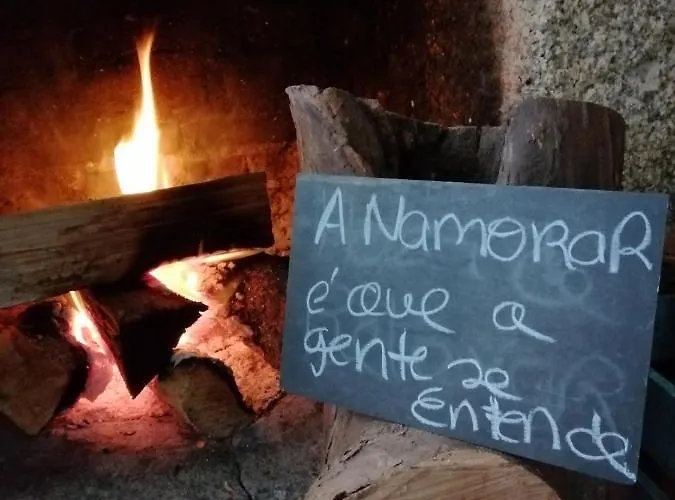 A NamoraR
é que a
gente se
Entende